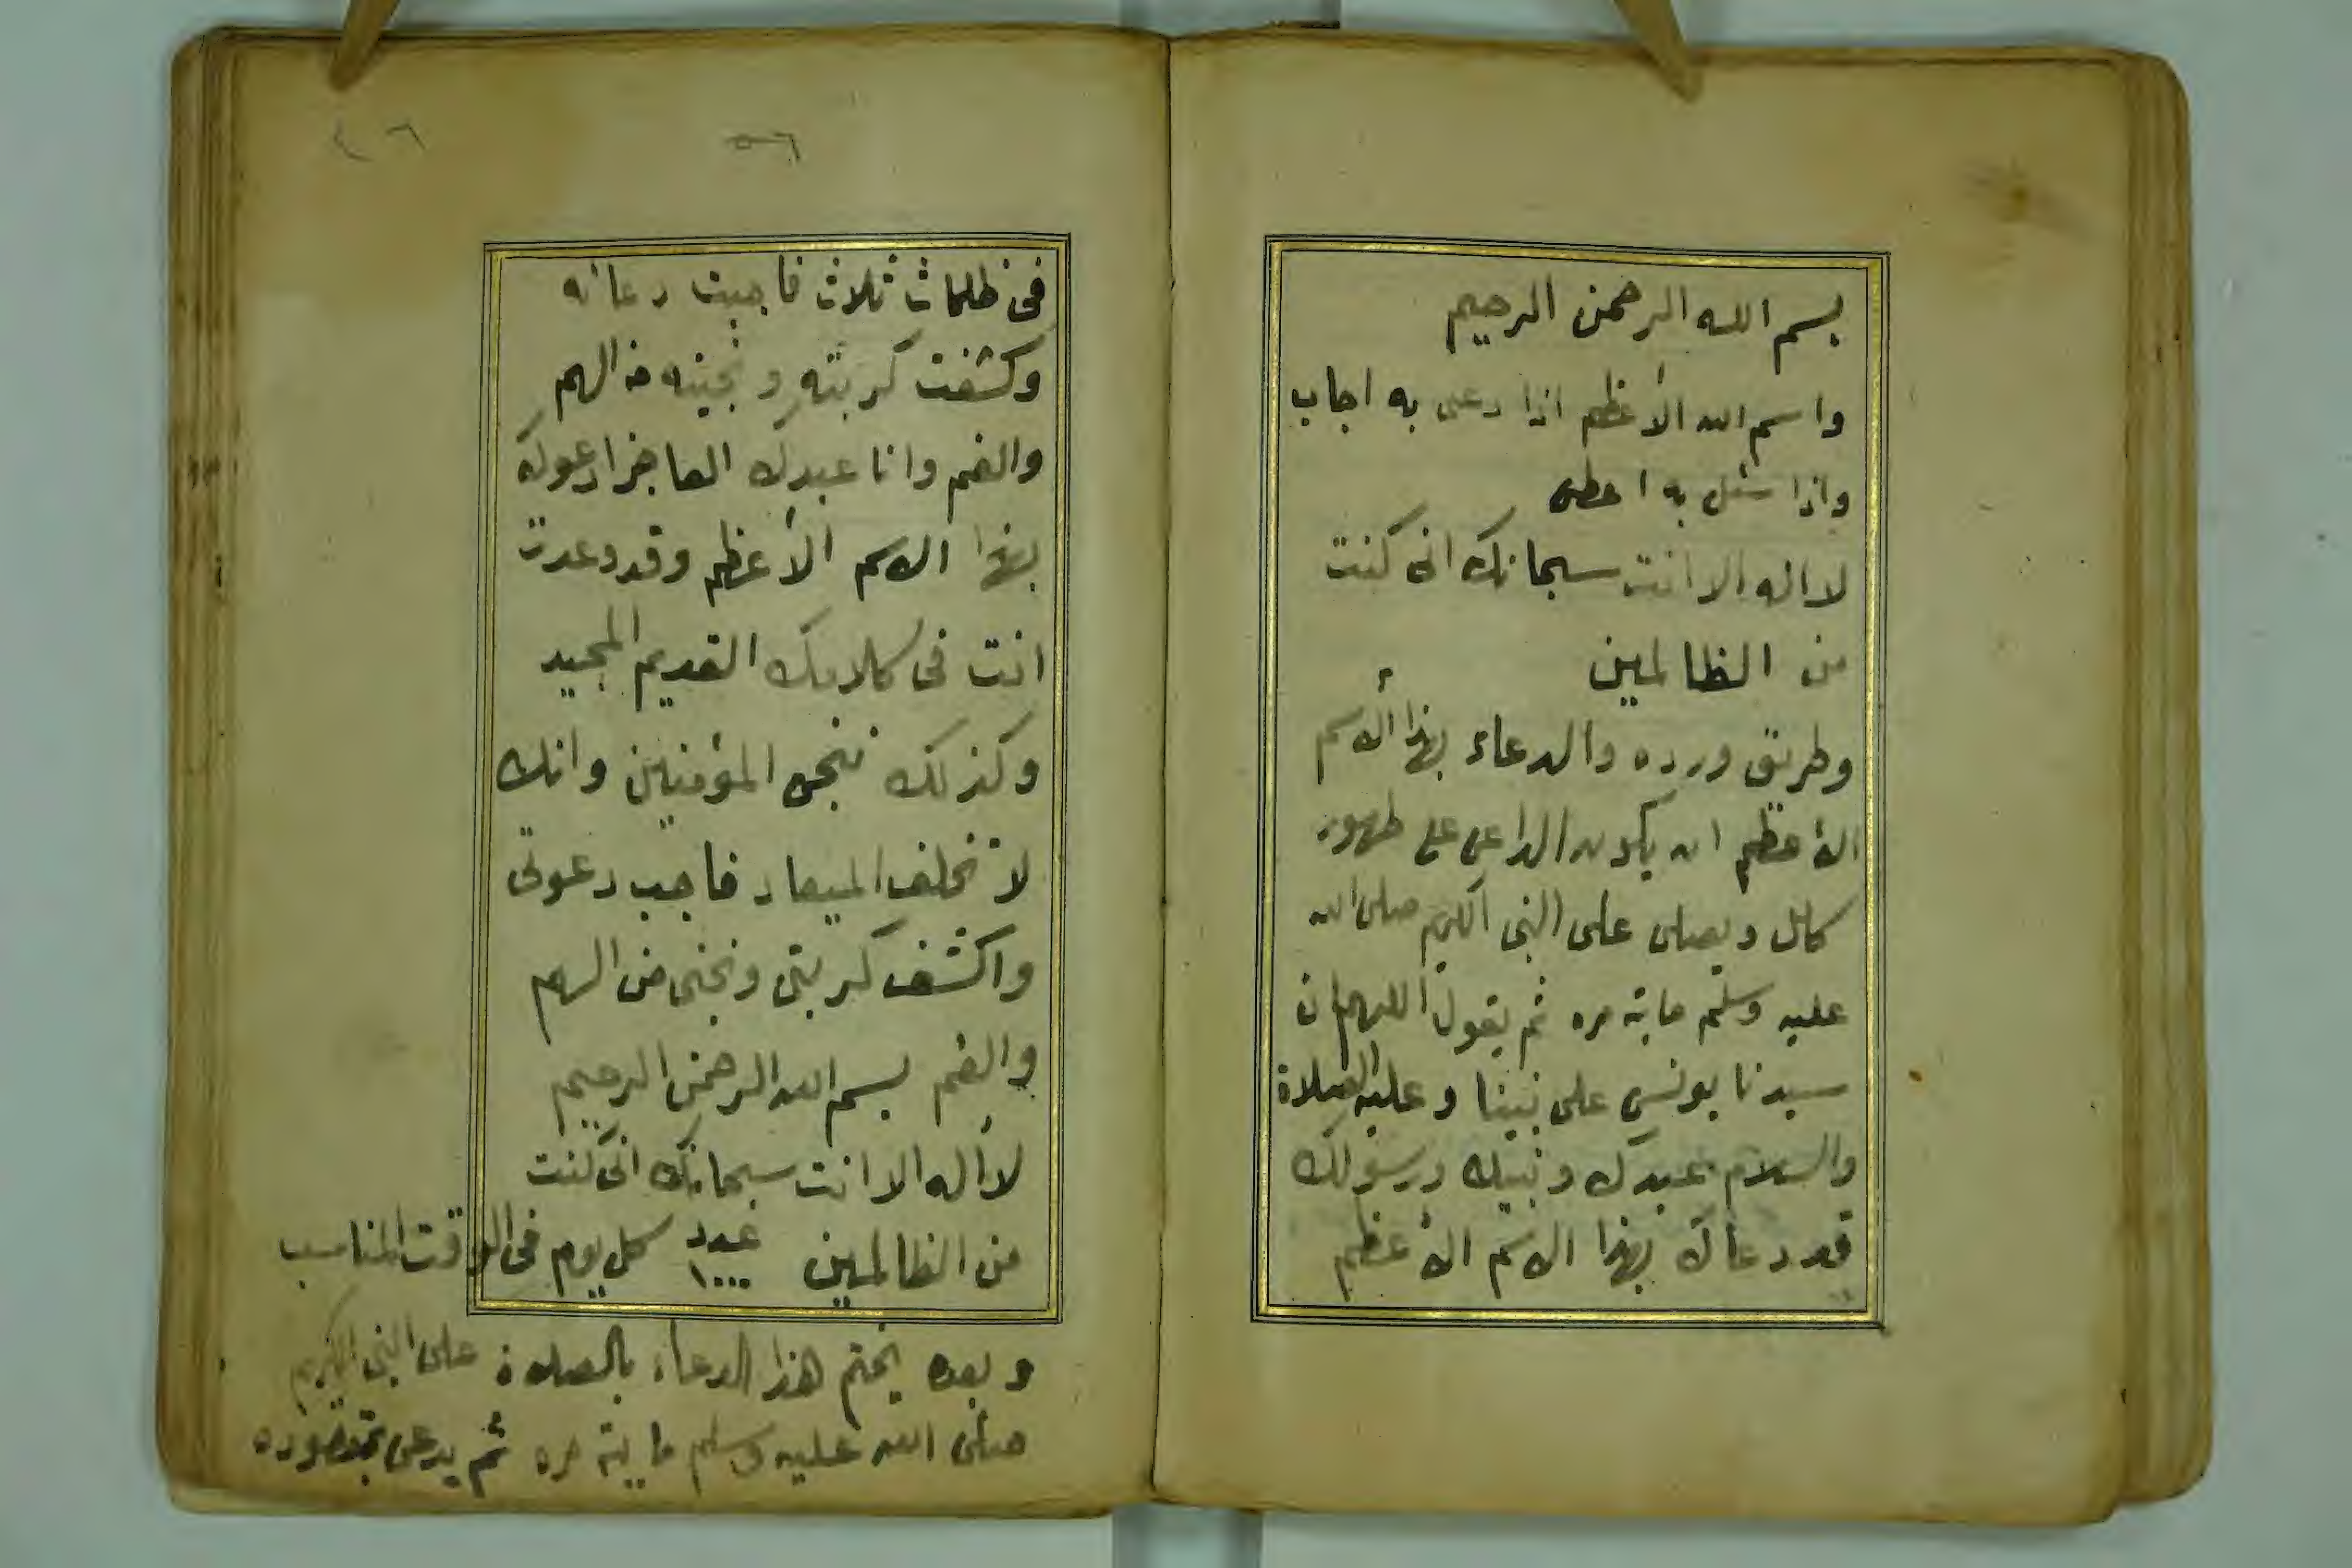 بسم الله الرحمن الرحيم
واسم الله الأعظم اذا دعى به اجاب
واذا سئل به اعطى
لا اله الا انت سبحانك انى كنت
من الظالمين
وطريق ورده والدعاء بهذا الاسم
الأعظم ان يكون الداعى على طهور
كامل ويصلى على النبى الكريم صلى الله
عليه وسلم ماية مره ثم يقول اللهم ان
سيدنا يونس على نبينا وعليه الصلاة
والسلام عبدك ونبيك ورسولك
قد دعاك بهذا الاسم الأعظم
٥٦
فى ظلمات ثلاث فاجبت دعائه
وكشفت كربته ونجيته من الهم
والغم وانا عبدك العاجز ادعوك
بهذا الاسم الأعظم وقد وعدت
انت فى كلامك القديم المجيد
وكذلك ننجى المؤمنين وانك
لا تخلف الميعاد فاجب دعوتى
واكشف كربتى ونجنى من الهم
والغم بسم الله الرحمن الرحيم
لا اله الا انت سبحانك انى كنت
من الظالمين عدد ١٠٠٠ كل يوم فى الوقت المناسب
وبعده يختم هذا الدعاء بالصلاة على النبى الكريم
صلى الله عليه وسلم ماية مره ثم يدعى بمقصوده